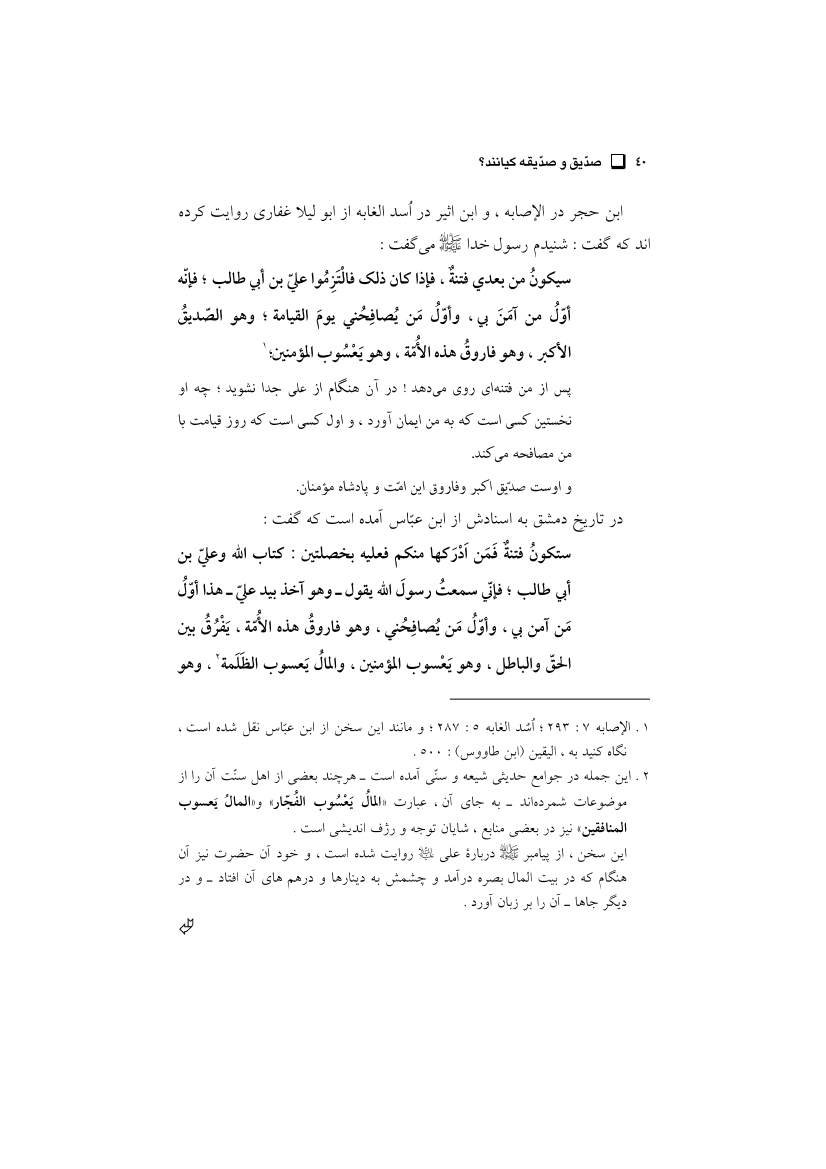 ٤٠ ❑ صدّیق و صدّیقه کیانند؟
ابن حجر در الإصابه ، و ابن اثیر در اُسد الغابه از ابو لیلا غفاری روایت کرده
اند که گفت : شنیدم رسول خدا ﷺ می‌گفت :
سیکونُ من بعدي فتنةٌ ، فإذا کان ذلک فالْتَزِمُوا عليّ بن أبي طالب ؛ فإنّه
أوّلُ من آمَنَ بي ، وأوّلُ مَن یُصافِحُني یومَ القیامة ؛ وهو الصّدیقُ
الأکبر ، وهو فاروقُ هذه الأُمّة ، وهو یَعْسُوب المؤمنین؛۱
پس از من فتنه‌ای روی می‌دهد ! در آن هنگام از علی جدا نشوید ؛ چه او
نخستین کسی است که به من ایمان آورد ، و اول کسی است که روز قیامت با
من مصافحه می‌کند.
و اوست صدّیق اکبر وفاروق این امّت و پادشاه مؤمنان.
در تاریخ دمشق به اسنادش از ابن عبّاس آمده است که گفت :
ستکونُ فتنةٌ فَمَن اَدْرَکها منکم فعلیه بخصلتین : کتاب الله وعليّ بن
أبي طالب ؛ فإنّي سمعتُ رسولَ الله یقول ـ وهو آخذ بید عليّ ـ هذا أوّلُ
مَن آمن بي ، وأوّلُ مَن یُصافِحُني ، وهو فاروقُ هذه الأُمّة ، یَفْرُقُ بین
الحقّ والباطل ، وهو یَعْسوب المؤمنین ، والمالُ یَعسوب الظَلَمة۲ ، وهو
۱ . الإصابه ۷ : ۲۹۳ ؛ اُسْد الغابه ٥ : ۲۸۷ ؛ و مانند این سخن از ابن عبّاس نقل شده است ،
نگاه کنید به ، الیقین (ابن طاووس) : ٥٠٠ .
۲ . این جمله در جوامع حدیثی شیعه و سنّی آمده است ـ هرچند بعضی از اهل سنّت آن را از
موضوعات شمرده‌اند ـ به جای آن ، عبارت «المالُ یَعْسُوب الفُجّار» و«المالُ یَعسوب
المنافقین» نیز در بعضی منابع ، شایان توجه و رژف اندیشی است .
این سخن ، از پیامبر ﷺ دربارهٔ علی روایت شده است ، و خود آن حضرت نیز آن
هنگام که در بیت المال بصره درآمد و چشمش به دینارها و درهم های آن افتاد ـ و در
دیگر جاها ـ آن را بر زبان آورد .